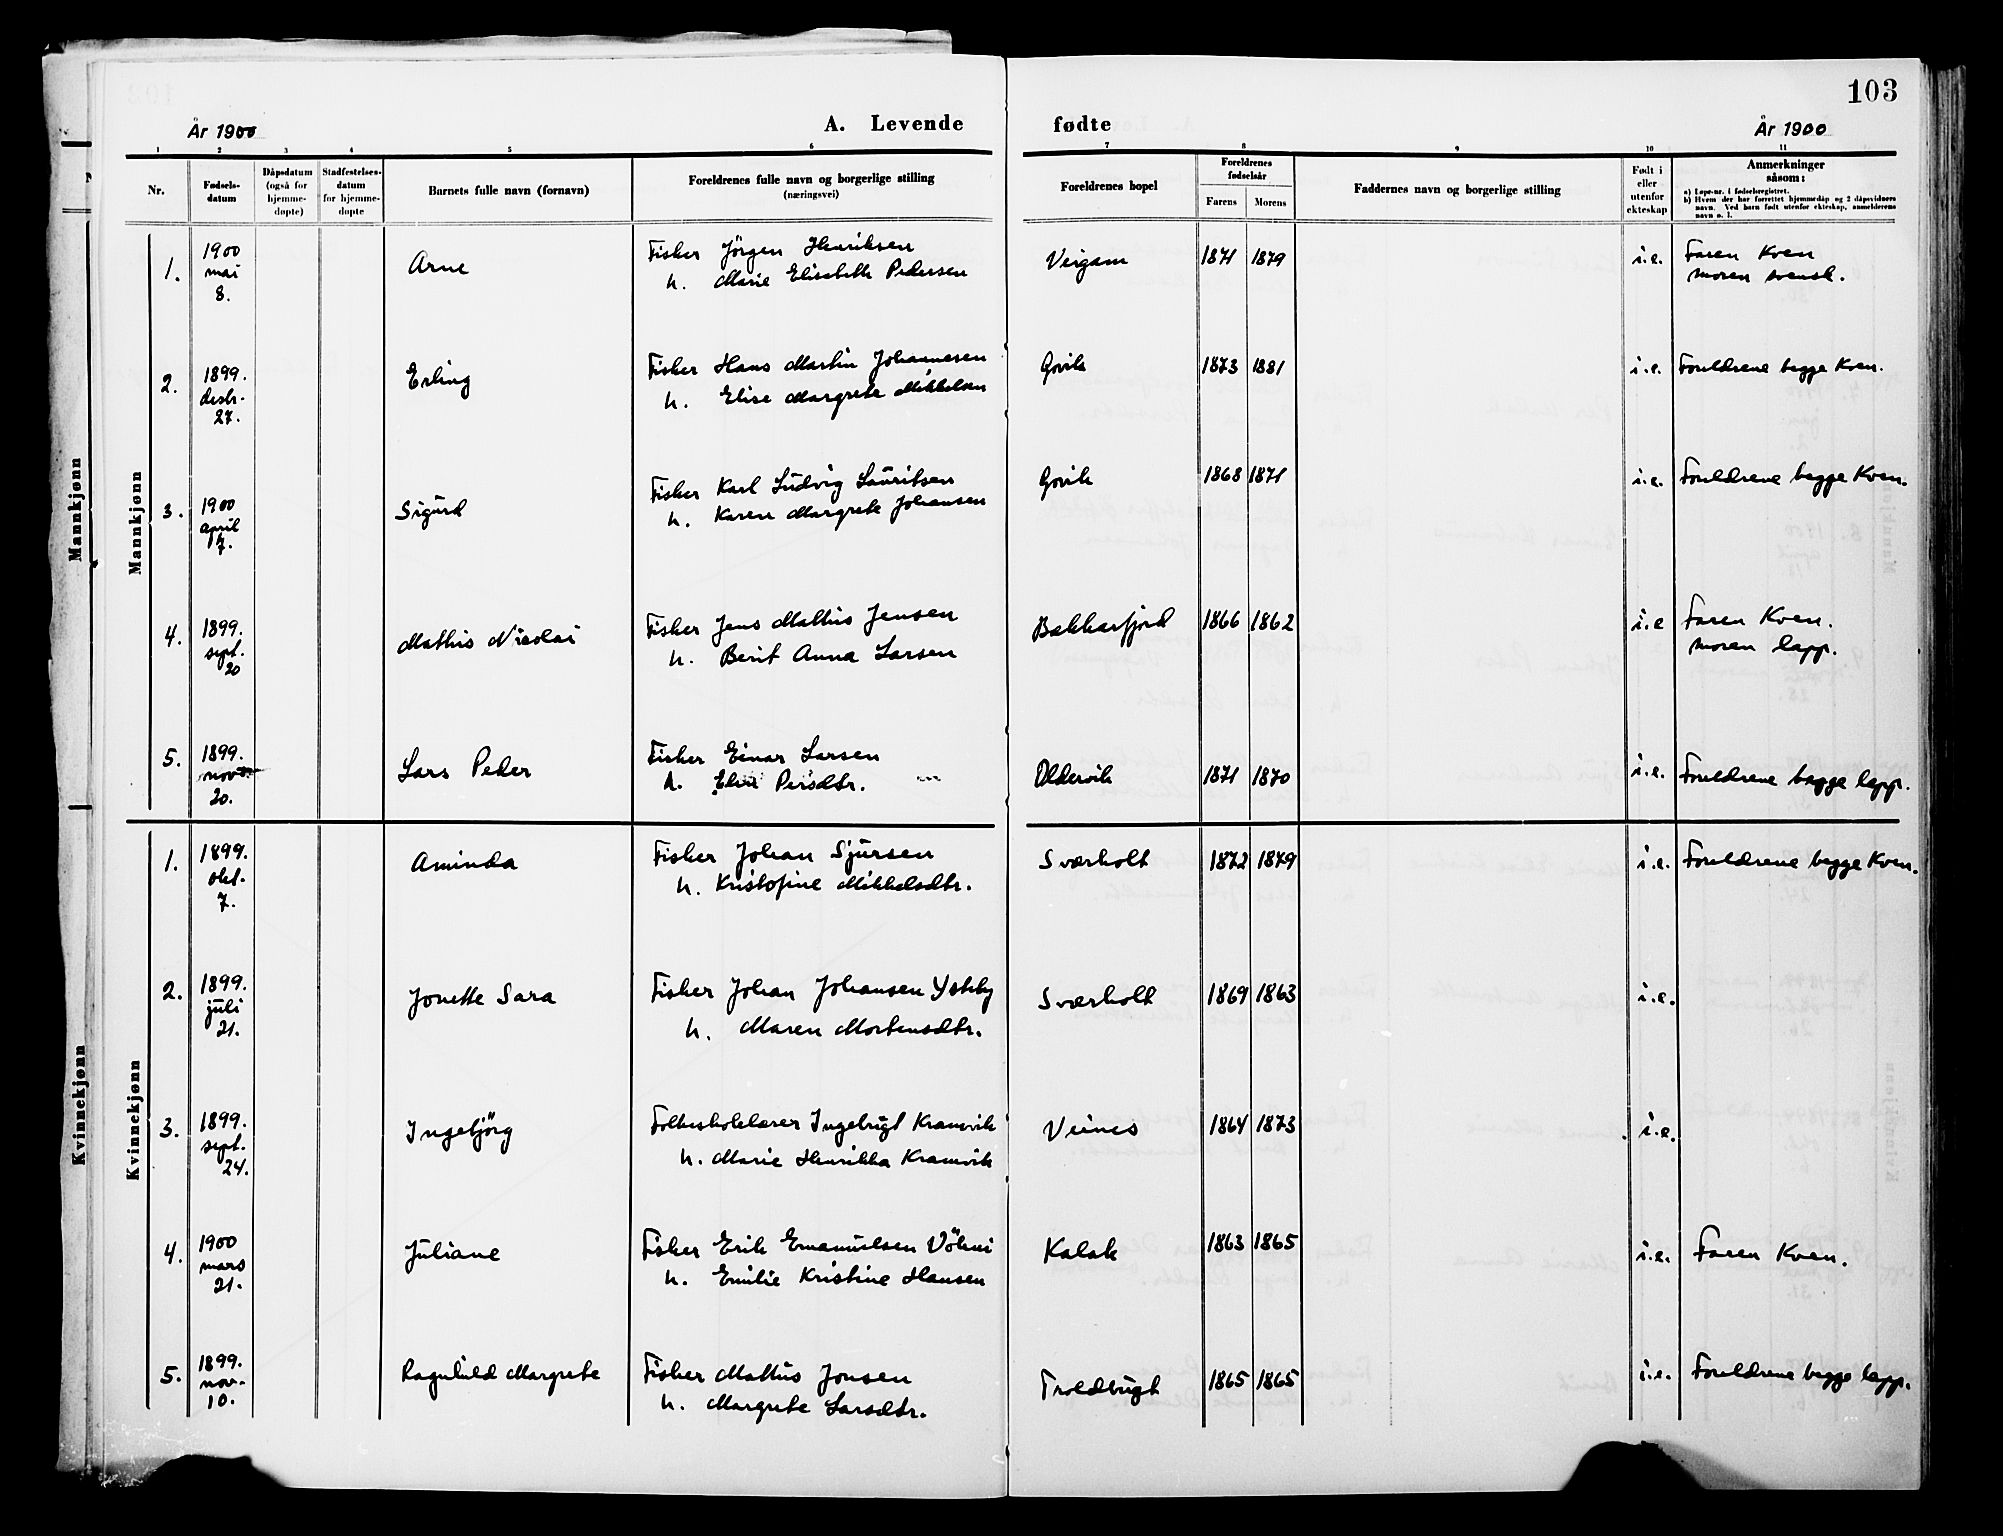 103
År 1900
A. Levende
fødte
År 1900
1 2 3 4 5 6 7 8 9 10 11
Nr.
Fødsels-
datum
Dåpsdatum
(også for
hjemme-
døpte)
Stadfestelses-
datum
for hjemme-
døpte
Barnets fulle navn (fornavn)
Foreldrenes fulle navn og borgerlige stilling
(næringsvei)
Foreldrenes bopel
Foreldrenes
fødselsår
Farens Morens
Faddernes navn og borgerlige stilling
Født i
eller
utenfor
ekteskap
Anmerkninger
såsom:
a) Løpe-nr. i fødselsregistret.
b) Hvem der har forrettet hjemmedåp og 2 dåpsvidners
navn. Ved barn født utenfor ekteskap, anmelderens
navn o. l.
Mannkjønn
Mannkjønn
1. 1900 mai 8. Arne Fisker Jörgen Henriksen Veigam 1871 1879 i.e. Faren Kven
h. Marie Elisabeth Pedersen moren svensk.
2. 1899. desbr. 27. Erling Fisker Hans Martin Johannesen Govik 1873 1881 i.e. Foreldrene begge Kven.
h. Elise Margrete Mikkelsen
3. 1900 april 7. Sigurd Fisker Karl Ludvig Lauritsen Govik 1868 1871 i.e. Foreldrene begge Kven.
h. Karen Margrete Johansen
4. 1899. sept. 20 Mathis Nicolai Fisker Jens Mathis Jensen Bakkarfjord 1866 1862 i.e Faren Kven.
h. Berit Anna Larsen moren lapp.
5. 1899. nov 20. Lars Peder Fisker Einar Larsen Oldervik 1871 1870 i.e. Foreldrene begge lapp.
h. Elen Persdtr.
Kvinnekjønn
Kvinnekjønn
1. 1899. okt. 7. Aminda Fisker Johan Sjursen Sværholt 1872 1879 i.e. Foreldrene begge Kven.
h. Kristofine Mikkelsdtr.
2. 1899. juli 21. Jonette Sara Fisker Johan Johansen Ysteby Sværholt 1869 1863 i.e.
h. Maren Mortensdtr.
3. 1899. sept. 24. Ingebjörg Folkeskolelærer Ingebrigt Kramvik Veines 1864 1873 i.e.
h. Marie Henrikka Kramvik
4. 1900 mars 21. Juliane Fisker Erik Emanuelsen Kalak 1863 1865 i.e. Faren Kven.
h. Emilie Kristine Hansen
5. 1899. nov. 10. Ragnhild Margrete Fisker Mathis Jonsen Troldbugt 1865 1865 i.e. Foreldrene begge lapp.
h. Margrete Larsdtr.